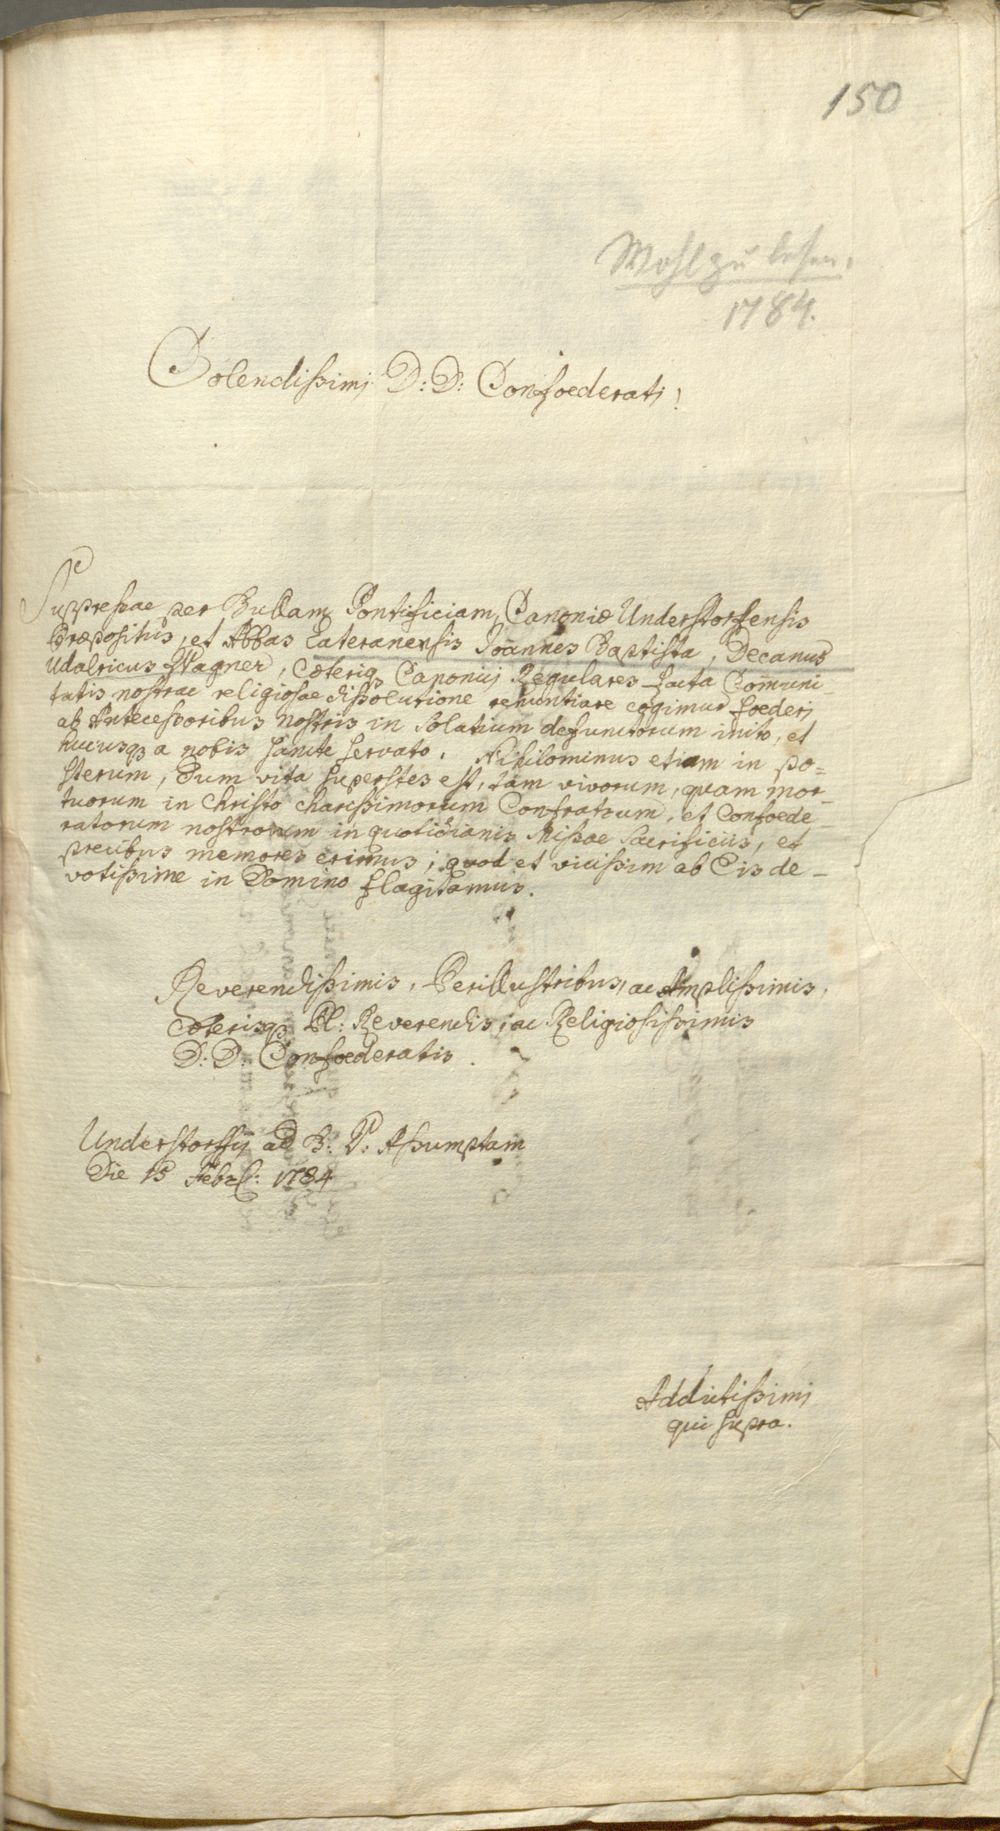 150
Wohl zu lesen.
1784.
Colendissimi D: D: Confoederati!
Suppressae per Bullam Pontificiam Canoniæ Understorfensis
Præpositus, et Abbas Lateranensis Joannes Baptista, Decanus
Udalricus Wagner, cæteriq3 Canonici Regulares facta Com̄uni-
tatis nostrae religiosae dissolutione renuntiare cogimur foederi
ab Antecessoribus nostris in solatium defunctorum inito, et
hucusq3 a nobis sancte servato. Nihilominus etiam in po=
sterum, dum vita superstes est, tam vivorum, quam mor-
tuorum in Christo charissimorum Confratrum, et Confoede-
ratorum nostrorum in quotidianis Missae sacrificiis, et
precibus memores erimus; quod et vicissim ab Eis de-
votissime in Domino flagitamus.
Reverendissimis, Perillustribus, ac Amplissimis,
cæterisq3 Pl: Reverendis, ac Religiosissimis
D: D: Confoederatis.
Understorffij ad B: V: Assumptam
Die 15 Febr: 1784
Addictissimi
qui supra.